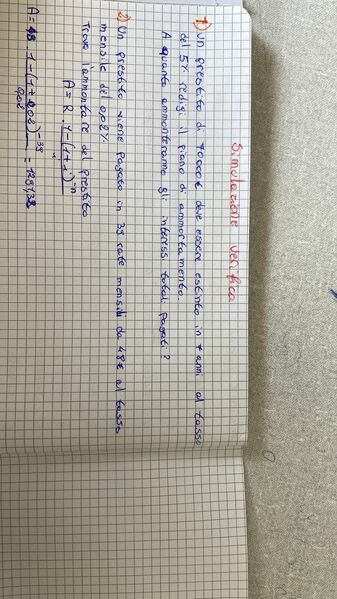 Simulazione verifica
1) Un prestito di 70000€ deve essere estinto in 7 anni al tasso
del 5% redigi il piano di ammortamento.
A quanto ammonteranno gli interessi totali pagati?
2) Un prestito viene pagato in 39 rate mensili da 48€ al tasso
mensile del 0,02%.
Trova l'ammontare del prestito
A = R . 1-(1+i)^-n / i
A = 48 . 1-(1+0,02)^-39 / 0,02 =